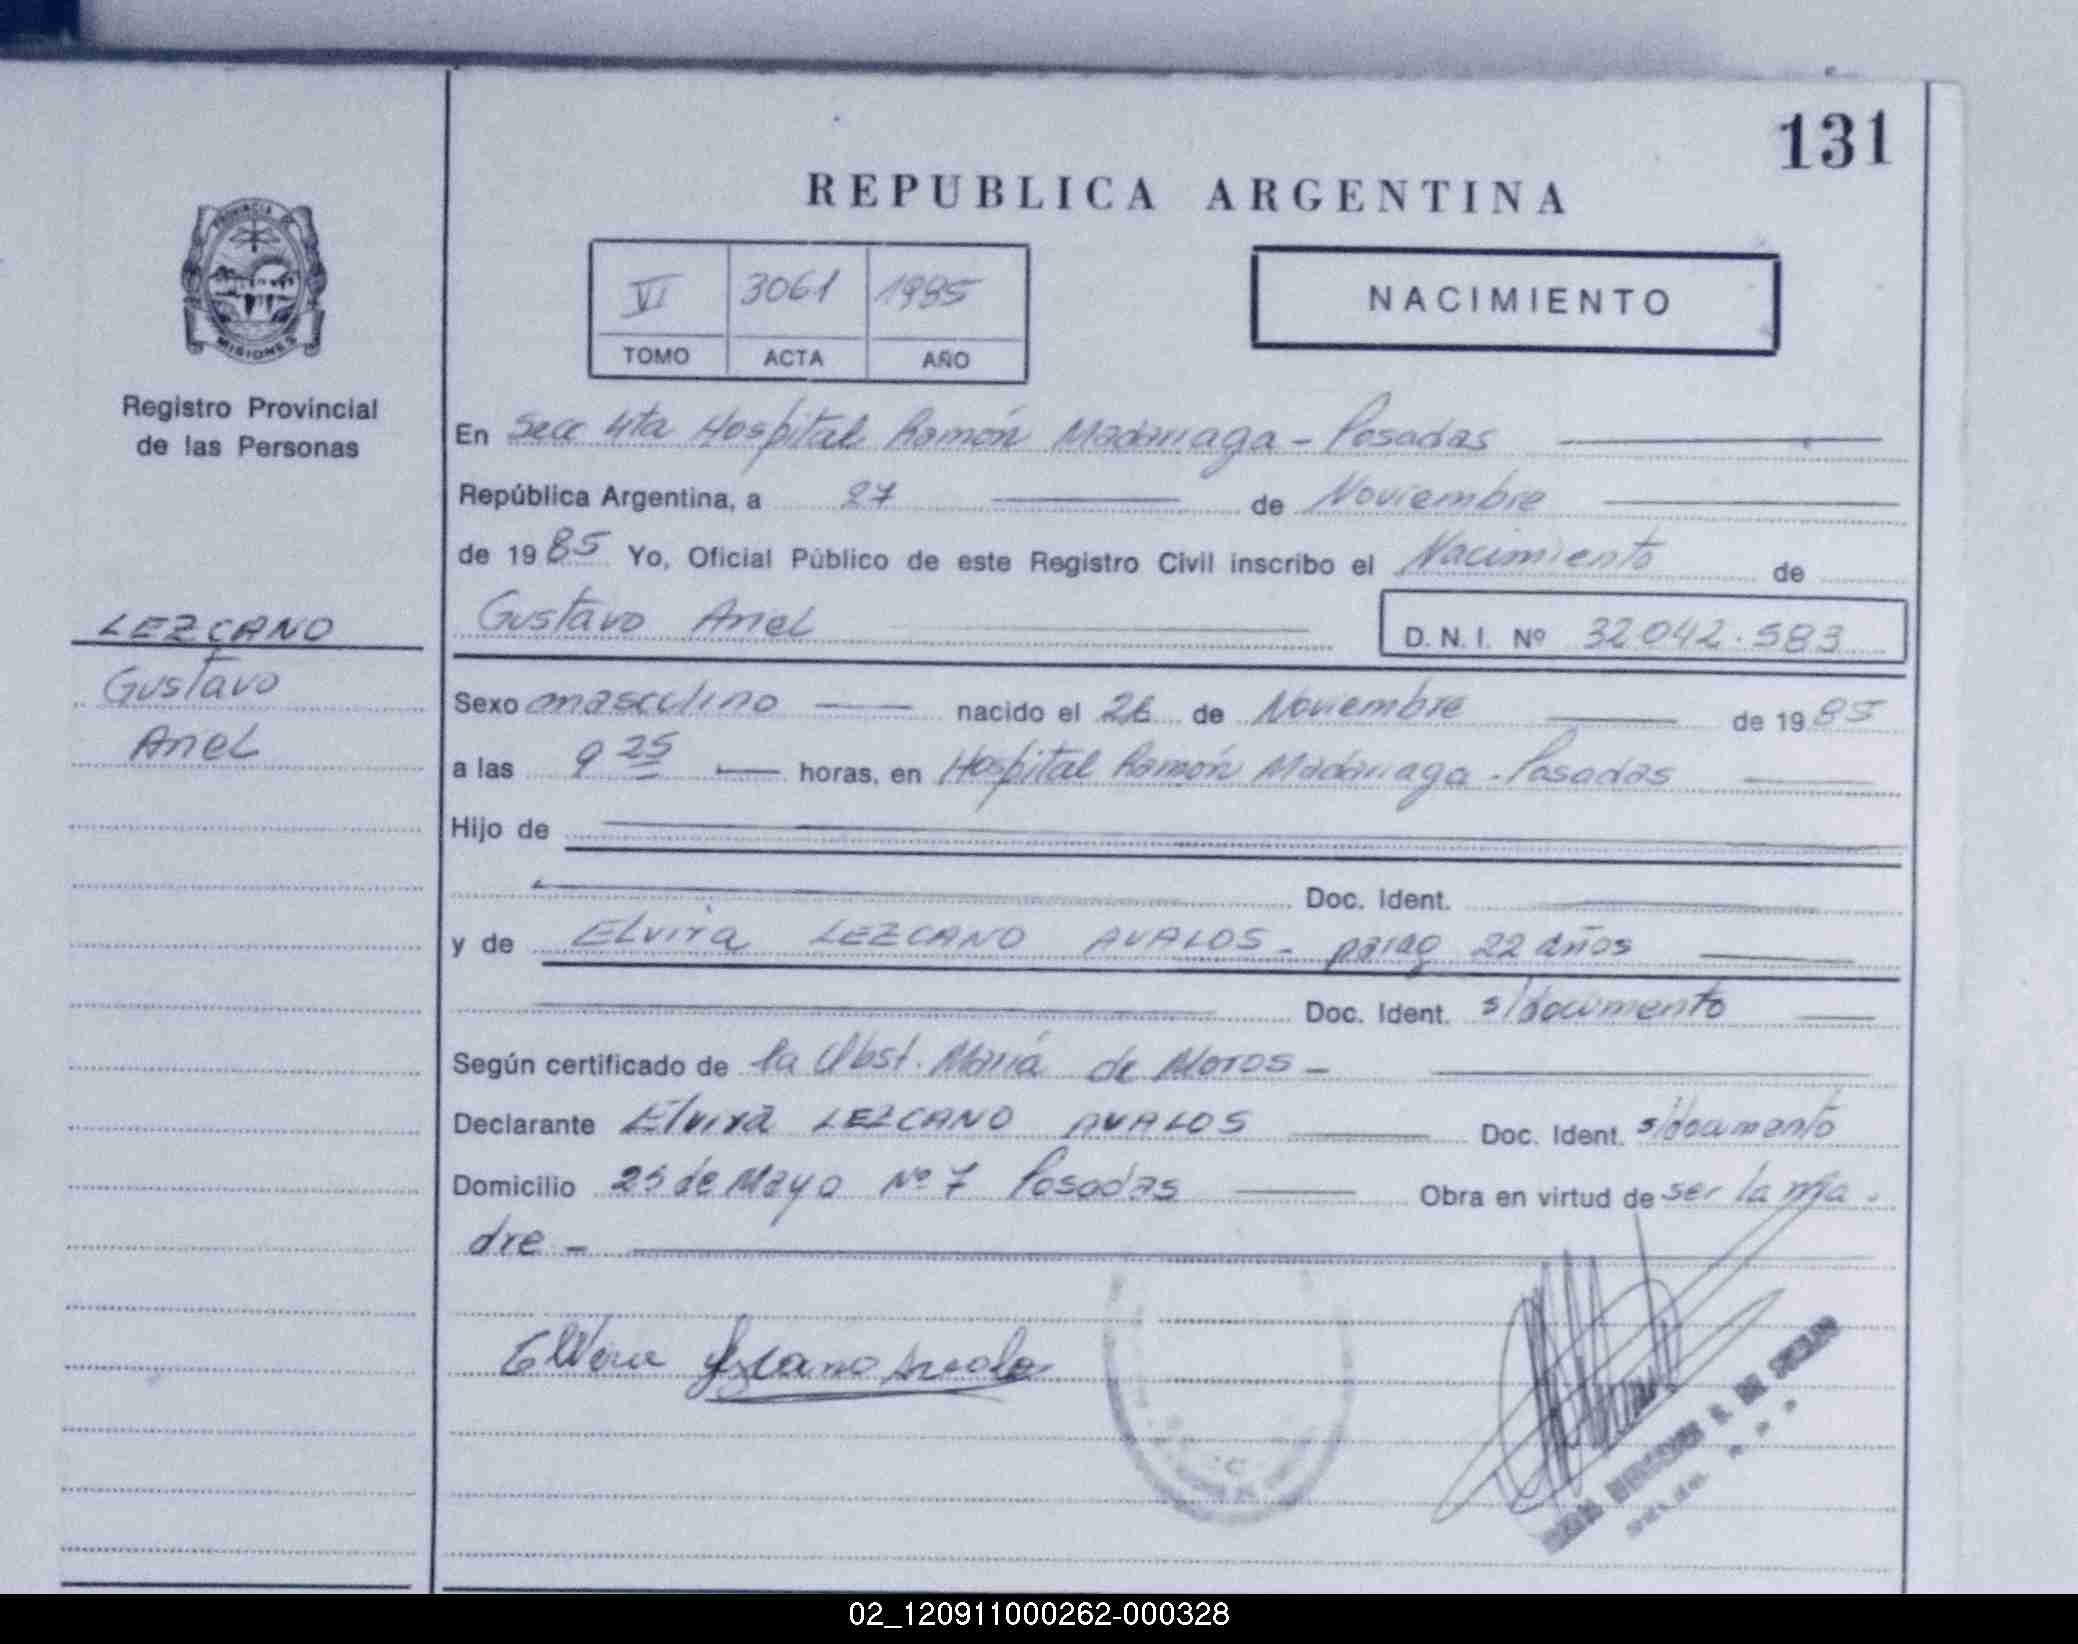 131
REPUBLICA ARGENTINA
PROVINCIA DE
MISIONES
Registro Provincial
de las Personas
VI 3061 1985
TOMO ACTA AÑO
NACIMIENTO
En Secc 4ta Hospital Ramón Madariaga - Posadas
República Argentina, a 27 de Noviembre
de 1985 Yo, Oficial Público de este Registro Civil inscribo el Nacimiento de
Gustavo Ariel D. N. I. Nº 32.042.583
LEZCANO
Gustavo
Ariel
Sexo masculino nacido el 26 de Noviembre de 1985
a las 9 25 horas, en Hospital Ramón Madariaga - Posadas
Hijo de
Doc. Ident.
y de Elvira LEZCANO AVALOS - parag 22 años
Doc. Ident. s/documento
Según certificado de la Obst. María de Moros -
Declarante Elvira LEZCANO AVALOS Doc. Ident. s/documento
Domicilio 25 de Mayo Nº 7 Posadas Obra en virtud de ser la ma-
dre -
Elvira Lezcano Avalos
02_120911000262-000328